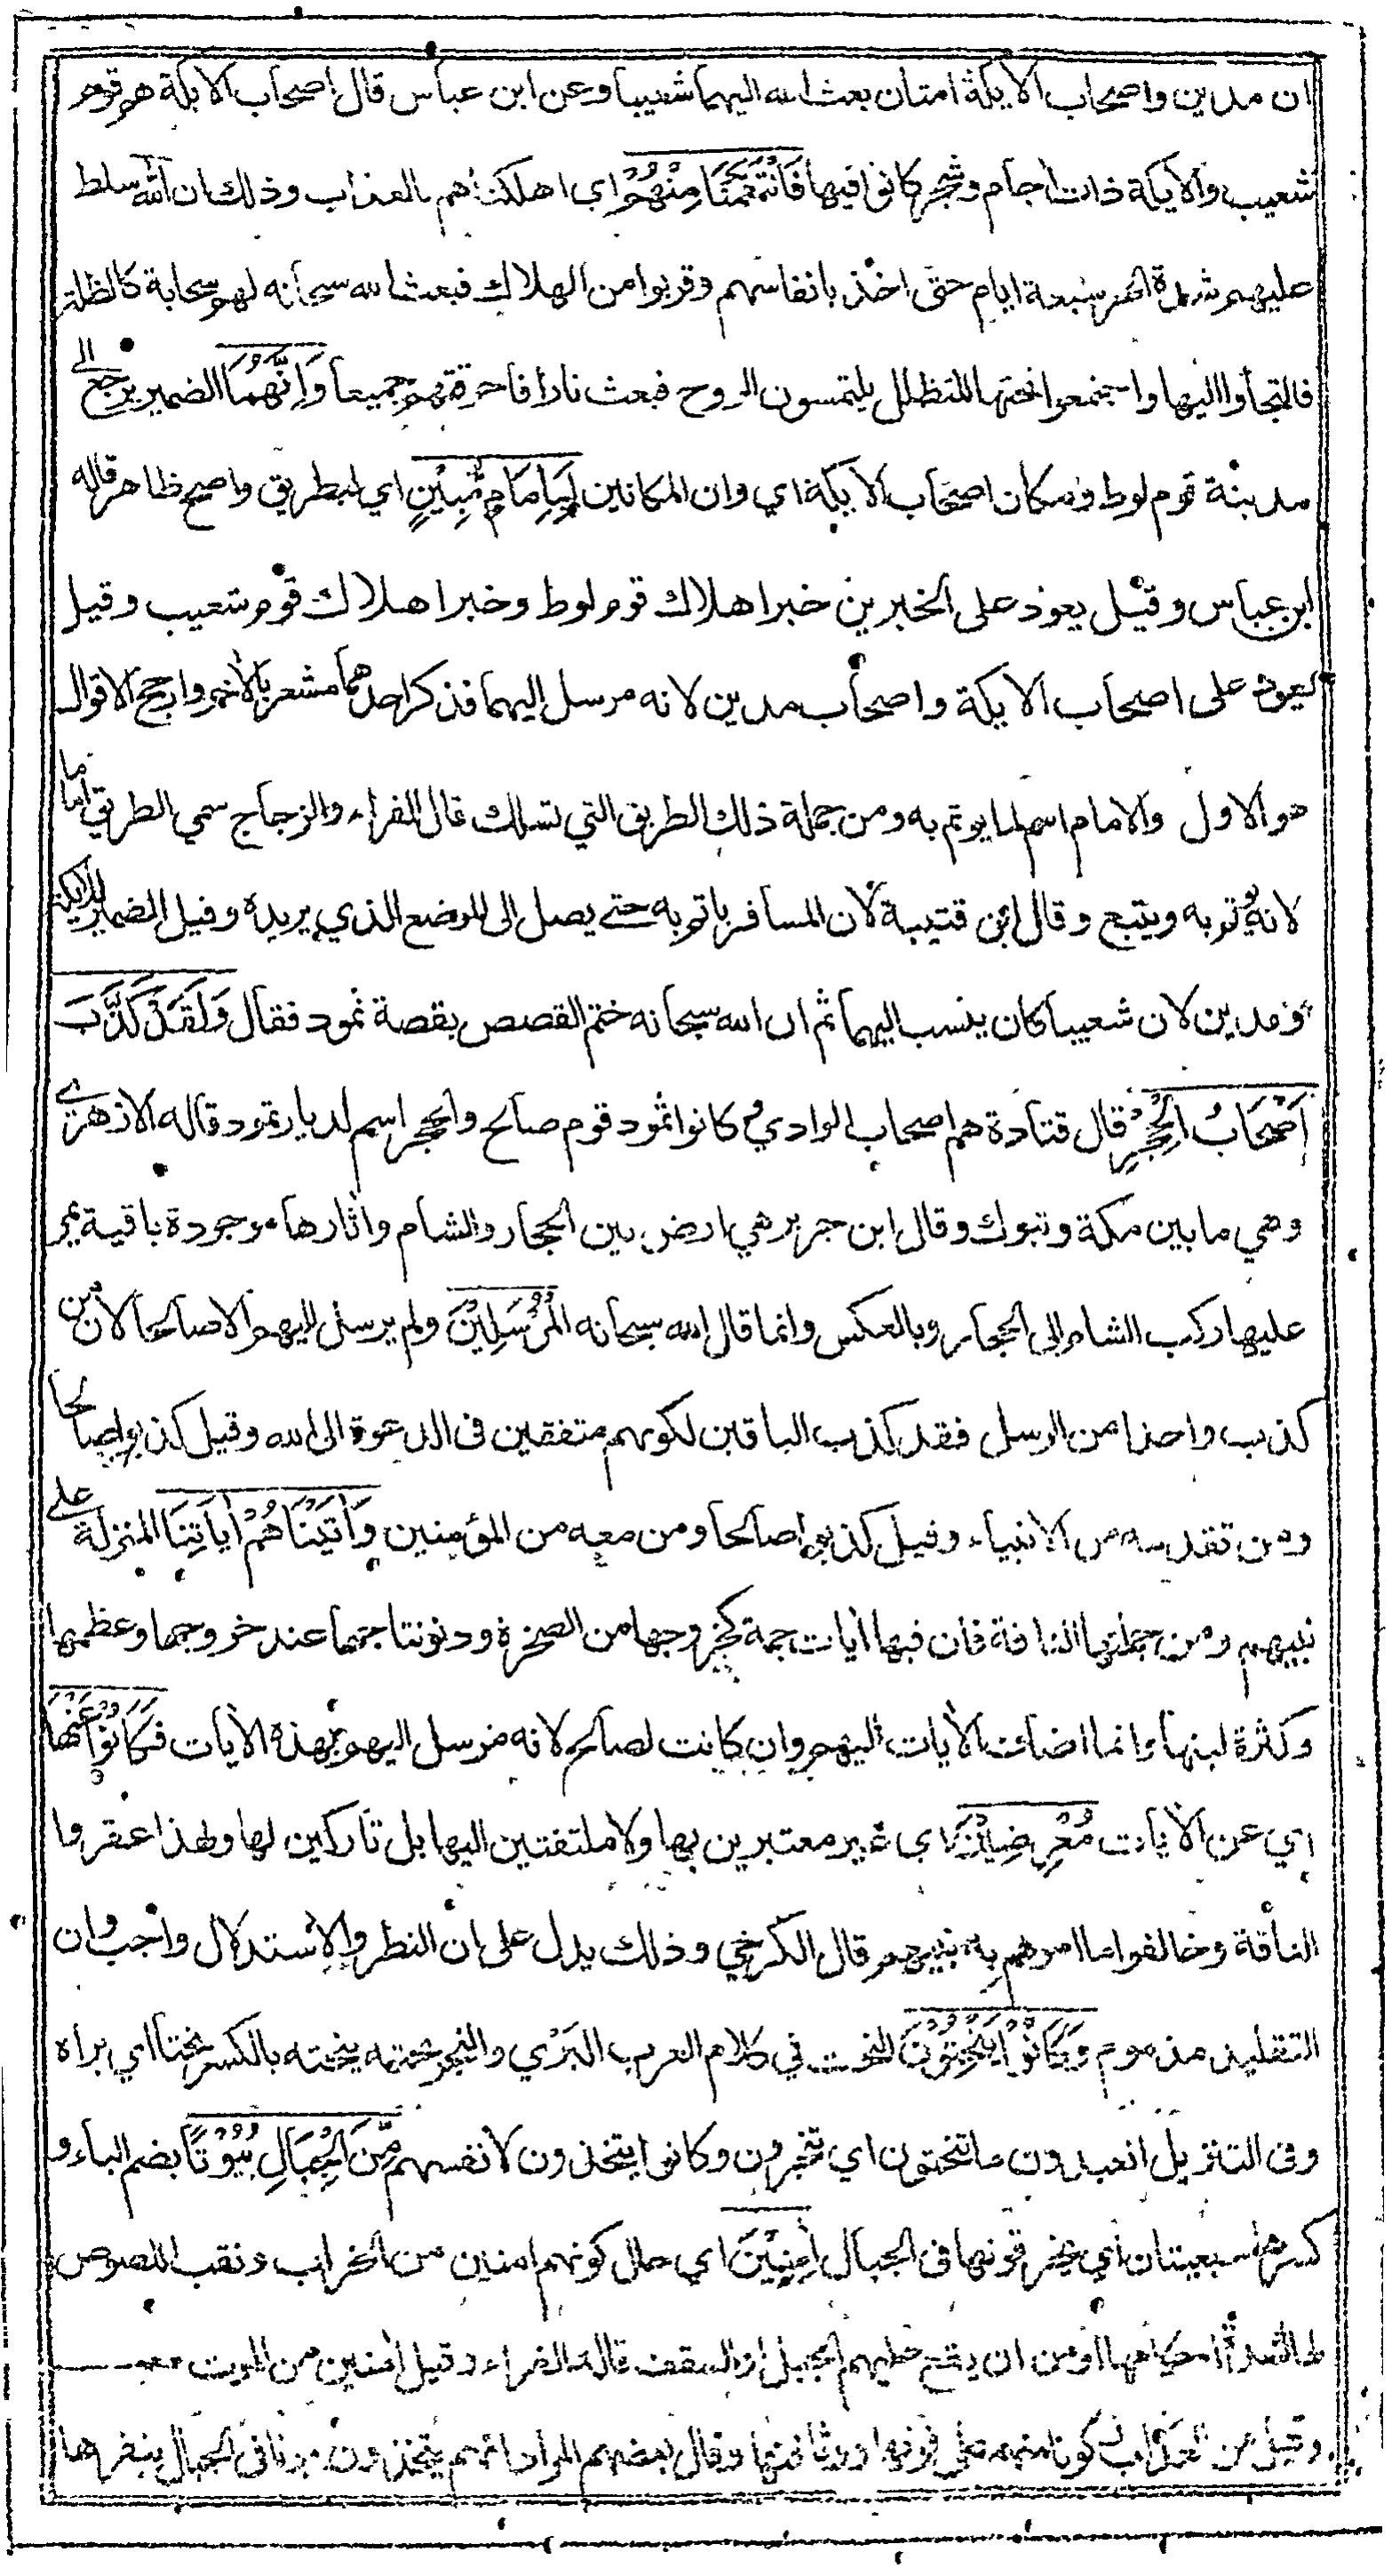 ان مدين واصحاب الايكة امتان بعث الله اليهما شعيبا وعن ابن عباس قال اصحاب الايكة هم قوم
شعيب والايكة ذات اجام وشجر كانوا فيها فَانْتَقَمْنَا مِنْهُمْ اي اهلكناهم بالعذاب وذلك ان الله سلط
عليهم شدة الحر سبعة ايام حتى اخذ بانفاسهم وقربوا من الهلاك فبعث الله سبحانه لهم سحابة كالظلة
فالتجأوا اليها واجتمعوا تحتها للتظلل يلتمسون الروح فبعث نارا فاحرقتهم جميعا وَاِنَّهُمَا الضمير يرجع الى
مدينة قوم لوط ومكان اصحاب الايكة اي وان المكانين لَبِاِمَامٍ مُّبِيْنٍ اي لبطريق واضح ظاهر قاله
ابن عباس وقيل يعود على الخبرين خبر اهلاك قوم لوط وخبر اهلاك قوم شعيب وقيل
يعود على اصحاب الايكة واصحاب مدين لانه مرسل اليهما فذكر احدهما مشعر بالاخر وارجح الاقوال
هو الاول والامام اسم لما يوتم به ومن جملة ذلك الطريق التي تسلك قال الفراء والزجاج سمي الطريق اماما
لانه يوتم به ويتبع وقال ابن قتيبة لان المسافر ياتم به حتى يصل الى الموضع الذي يريده وقيل الضمير للايكة
ومدين لان شعيبا كان ينسب اليهما ثم ان الله سبحانه ختم القصص بقصة ثمود فقال وَلَقَدْ كَذَّبَ
اَصْحَابُ الْحِجْرِ قال قتادة هم اصحاب الوادي وكانوا ثمود قوم صالح والحجر اسم لديار ثمود قاله الازهري
وهي ما بين مكة وتبوك وقال ابن جرير هي ارض بين الحجاز والشام واثارها موجودة باقية يمر
عليها ركب الشام الى الحجاز وبالعكس وانما قال الله سبحانه الْمُرْسَلِيْنَ ولم يرسل اليهم الا صالحا لان من
كذب واحدا من الرسل فقد كذب الباقين لكونهم متفقين في الدعوة الى الله وقيل كذبوا صالحا
ومن تقدمه من الانبياء وقيل كذبوا صالحا ومن معه من المؤمنين وَاٰتَيْنَاهُمْ اٰيَاتِنَا المنزلة على
نبيهم ومن جملتها الناقة فان فيها ايات جمة كخروجها من الصخرة ودنو نتاجها عند خروجها وعظمها
وكثرة لبنها وانما اضاف الايات اليهم وان كانت لصالح لانه مرسل اليهم بهذه الايات فَكَانُوْا عَنْهَا
اي عن الايات مُعْرِضِيْنَ اي غير معتبرين بها ولا ملتفتين اليها بل تاركين لها ولهذا عقروا
الناقة وخالفوا ما امرهم به نبيهم قال الكرخي وذلك يدل على ان النظر والاستدلال واجب وان
التقليد مذموم وَكَانُوْا يَنْحِتُوْنَ النحت في كلام العرب البَرْي والنجر نحته ينحته بالكسر نحتا اي براه
وفي التنزيل اتعبدون ما تنحتون اي تنجرون وكانوا يتخذون لانفسهم مِّنَ الْجِبَالِ بُيُوْتًا بضم الباء و
كسرها سبعيتان اي يخرقونها في الجبال اٰمِنِيْنَ اي حال كونهم امنين من الخراب ونقب اللصوص
لها لشدة احكامها او من ان يقع عليهم الجبل او السقف قاله الفراء وقيل امنين من الموت
وقيل من العذاب وقال بعضهم المراد انهم يتخذون بيوتا في الجبال ينقرها